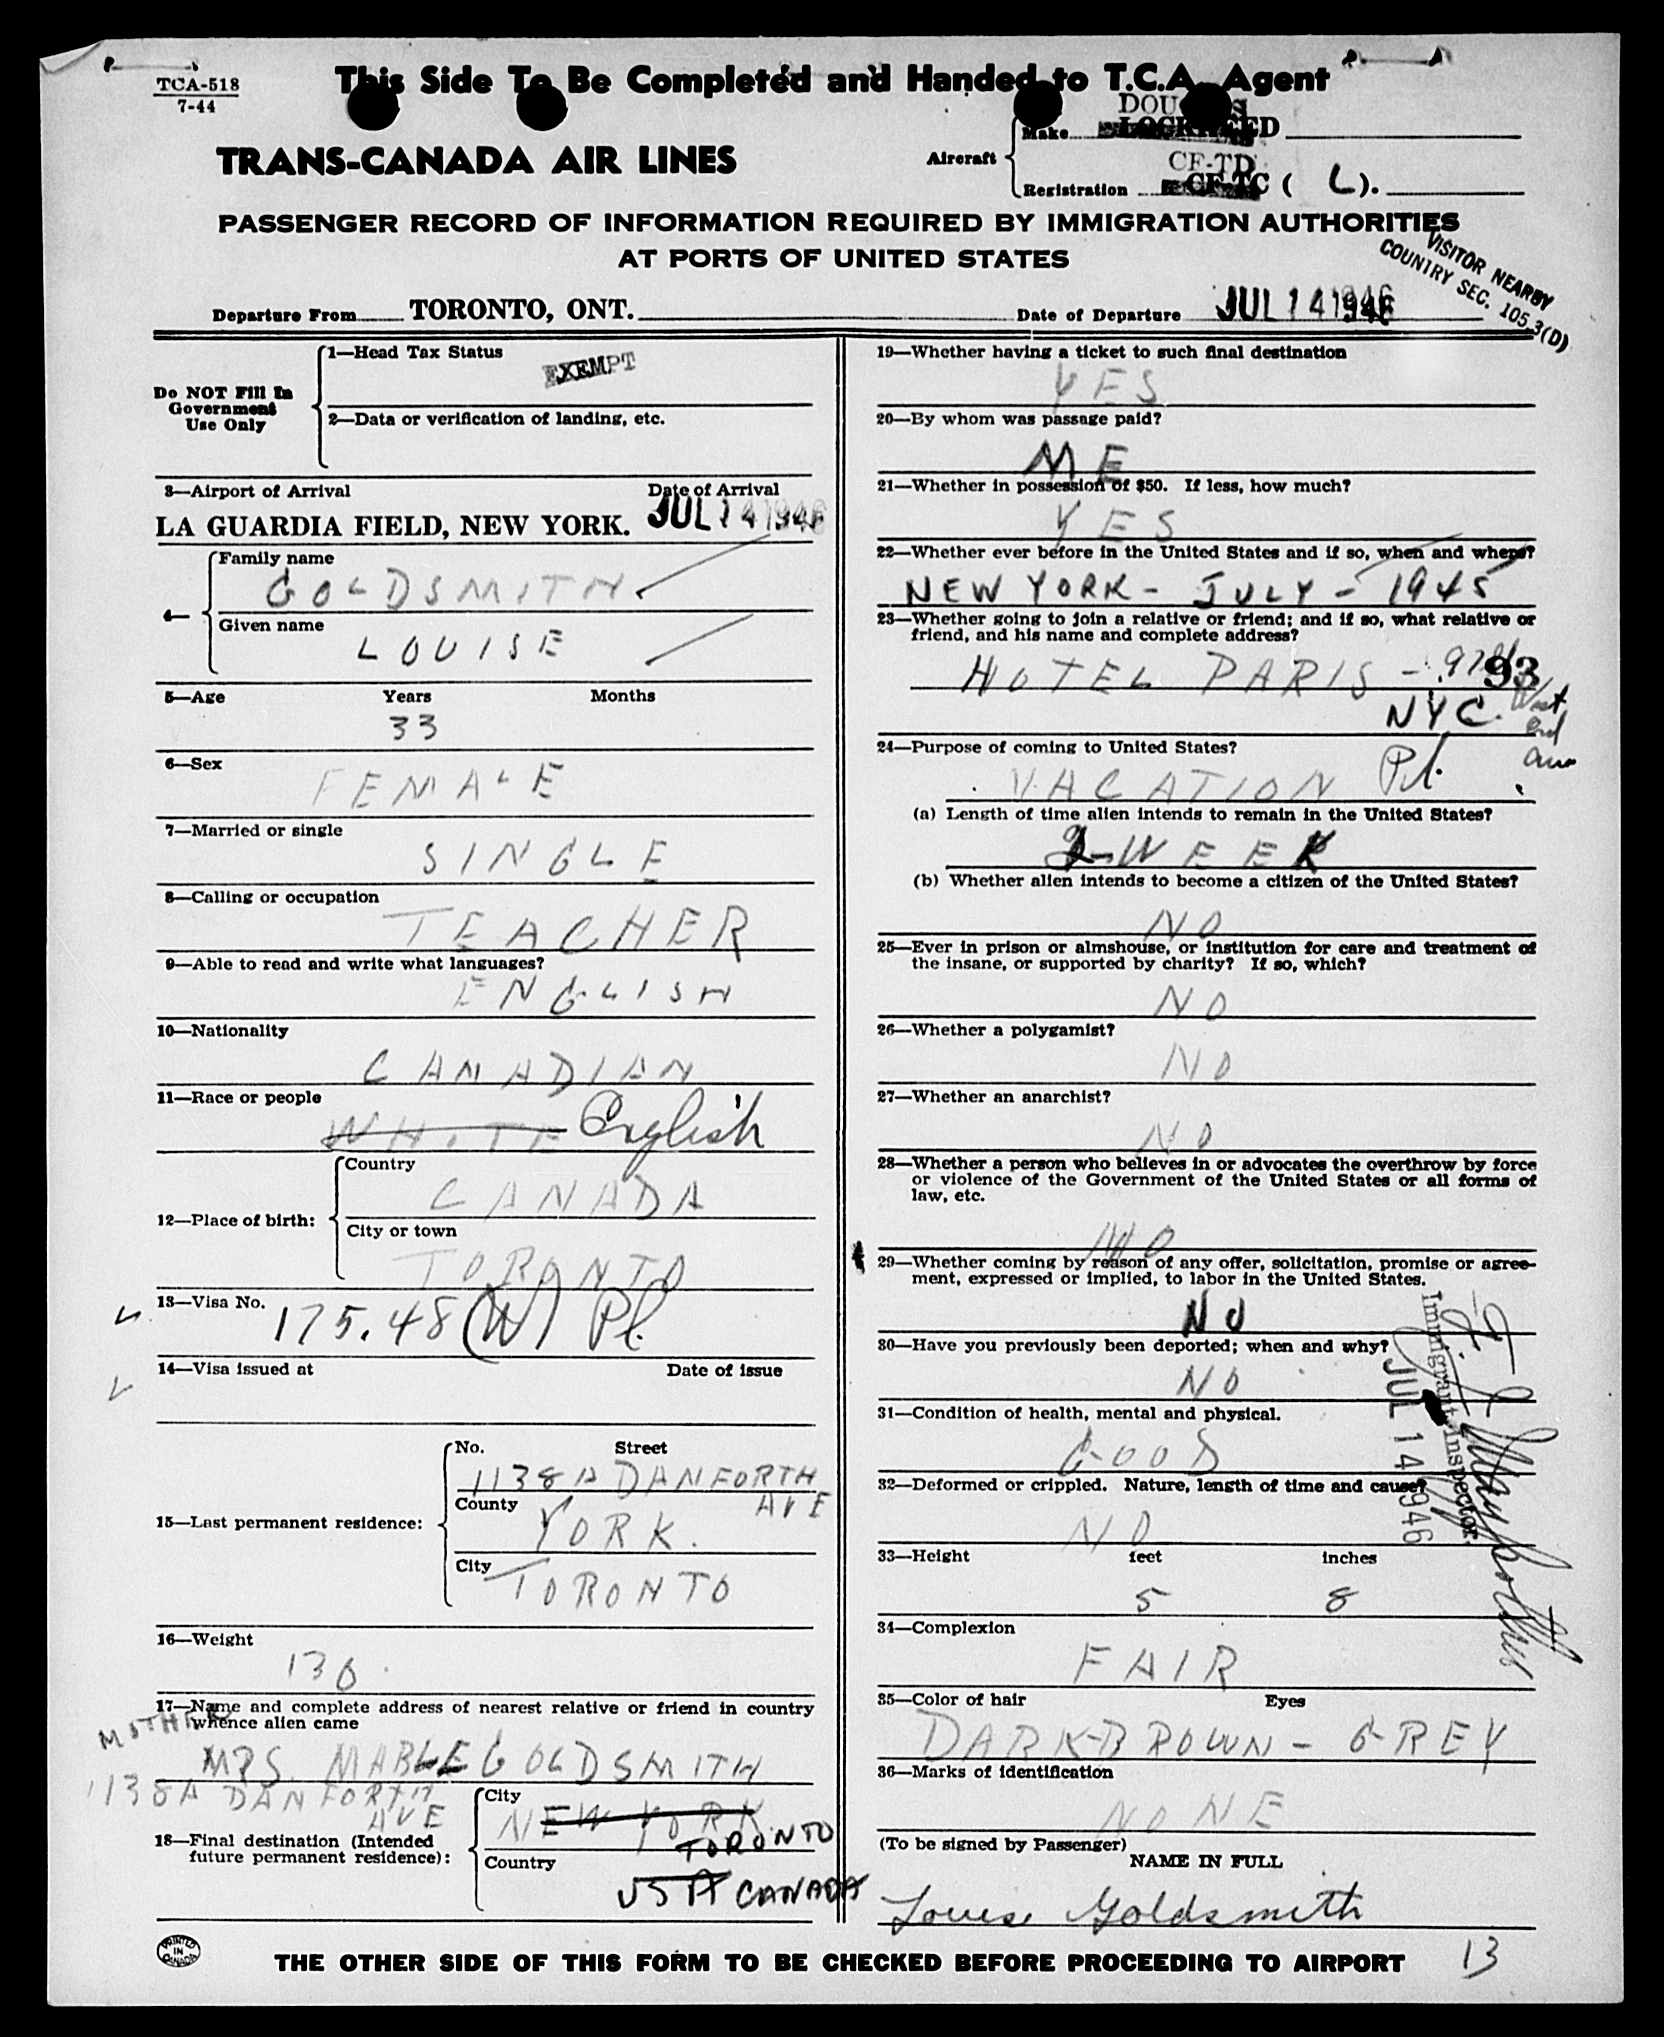 TCA-518
7-44
This Side To Be Completed and Handed to T.C.A. Agent
TRANS-CANADA AIR LINES
Aircraft
Make
DOUGLAS
LOCKHEED
Registration
CF-TD
CF-TC ( L ).
PASSENGER RECORD OF INFORMATION REQUIRED BY IMMIGRATION AUTHORITIES
AT PORTS OF UNITED STATES
VISITOR NEARBY
COUNTRY SEC. 105.3(D)
Departure From TORONTO, ONT.
Date of Departure JUL 14 1946
Do NOT Fill In
Government
Use Only
1—Head Tax Status
EXEMPT
2—Data or verification of landing, etc.
3—Airport of Arrival Date of Arrival
LA GUARDIA FIELD, NEW YORK. JUL 14 1946
4—
Family name
GOLDSMITH
Given name
LOUISE
5—Age Years Months
33
6—Sex
FEMALE
7—Married or single
SINGLE
8—Calling or occupation
TEACHER
9—Able to read and write what languages?
ENGLISH
10—Nationality
CANADIAN
11—Race or people
WHITE English
12—Place of birth:
Country
CANADA
City or town
TORONTO
13—Visa No.
175.48 (W) Pl.
14—Visa issued at Date of issue
15—Last permanent residence:
No. Street
1138A DANFORTH
AVE
County
YORK.
City
TORONTO
16—Weight
130
17—Name and complete address of nearest relative or friend in country
whence alien came
MOTHER
MRS. MABLE GOLDSMITH
1138A DANFORTH
AVE
18—Final destination (Intended
future permanent residence):
City
NEW YORK
TORONTO
Country
USA CANADA
19—Whether having a ticket to such final destination
YES
20—By whom was passage paid?
ME
21—Whether in possession of $50. If less, how much?
YES
22—Whether ever before in the United States and if so, when and where?
NEW YORK - JULY - 1945
23—Whether going to join a relative or friend; and if so, what relative or
friend, and his name and complete address?
HOTEL PARIS - 97th 93
West
NYC. End
Ave
24—Purpose of coming to United States?
VACATION Pl.
(a) Length of time alien intends to remain in the United States?
WEEK
(b) Whether alien intends to become a citizen of the United States?
NO
25—Ever in prison or almshouse, or institution for care and treatment of
the insane, or supported by charity? If so, which?
NO
26—Whether a polygamist?
NO
27—Whether an anarchist?
NO
28—Whether a person who believes in or advocates the overthrow by force
or violence of the Government of the United States or all forms of
law, etc.
NO
29—Whether coming by reason of any offer, solicitation, promise or agree-
ment, expressed or implied, to labor in the United States.
NO
30—Have you previously been deported; when and why?
NO
31—Condition of health, mental and physical.
GOOD
32—Deformed or crippled. Nature, length of time and cause?
NO
Immigrant Inspector.
JUL 14 1946
33—Height feet inches
5 8
34—Complexion
FAIR
35—Color of hair Eyes
DARK-BROWN - GREY
36—Marks of identification
NONE
(To be signed by Passenger)
NAME IN FULL
Louise Goldsmith
PRINTED
IN
CANADA
THE OTHER SIDE OF THIS FORM TO BE CHECKED BEFORE PROCEEDING TO AIRPORT
13